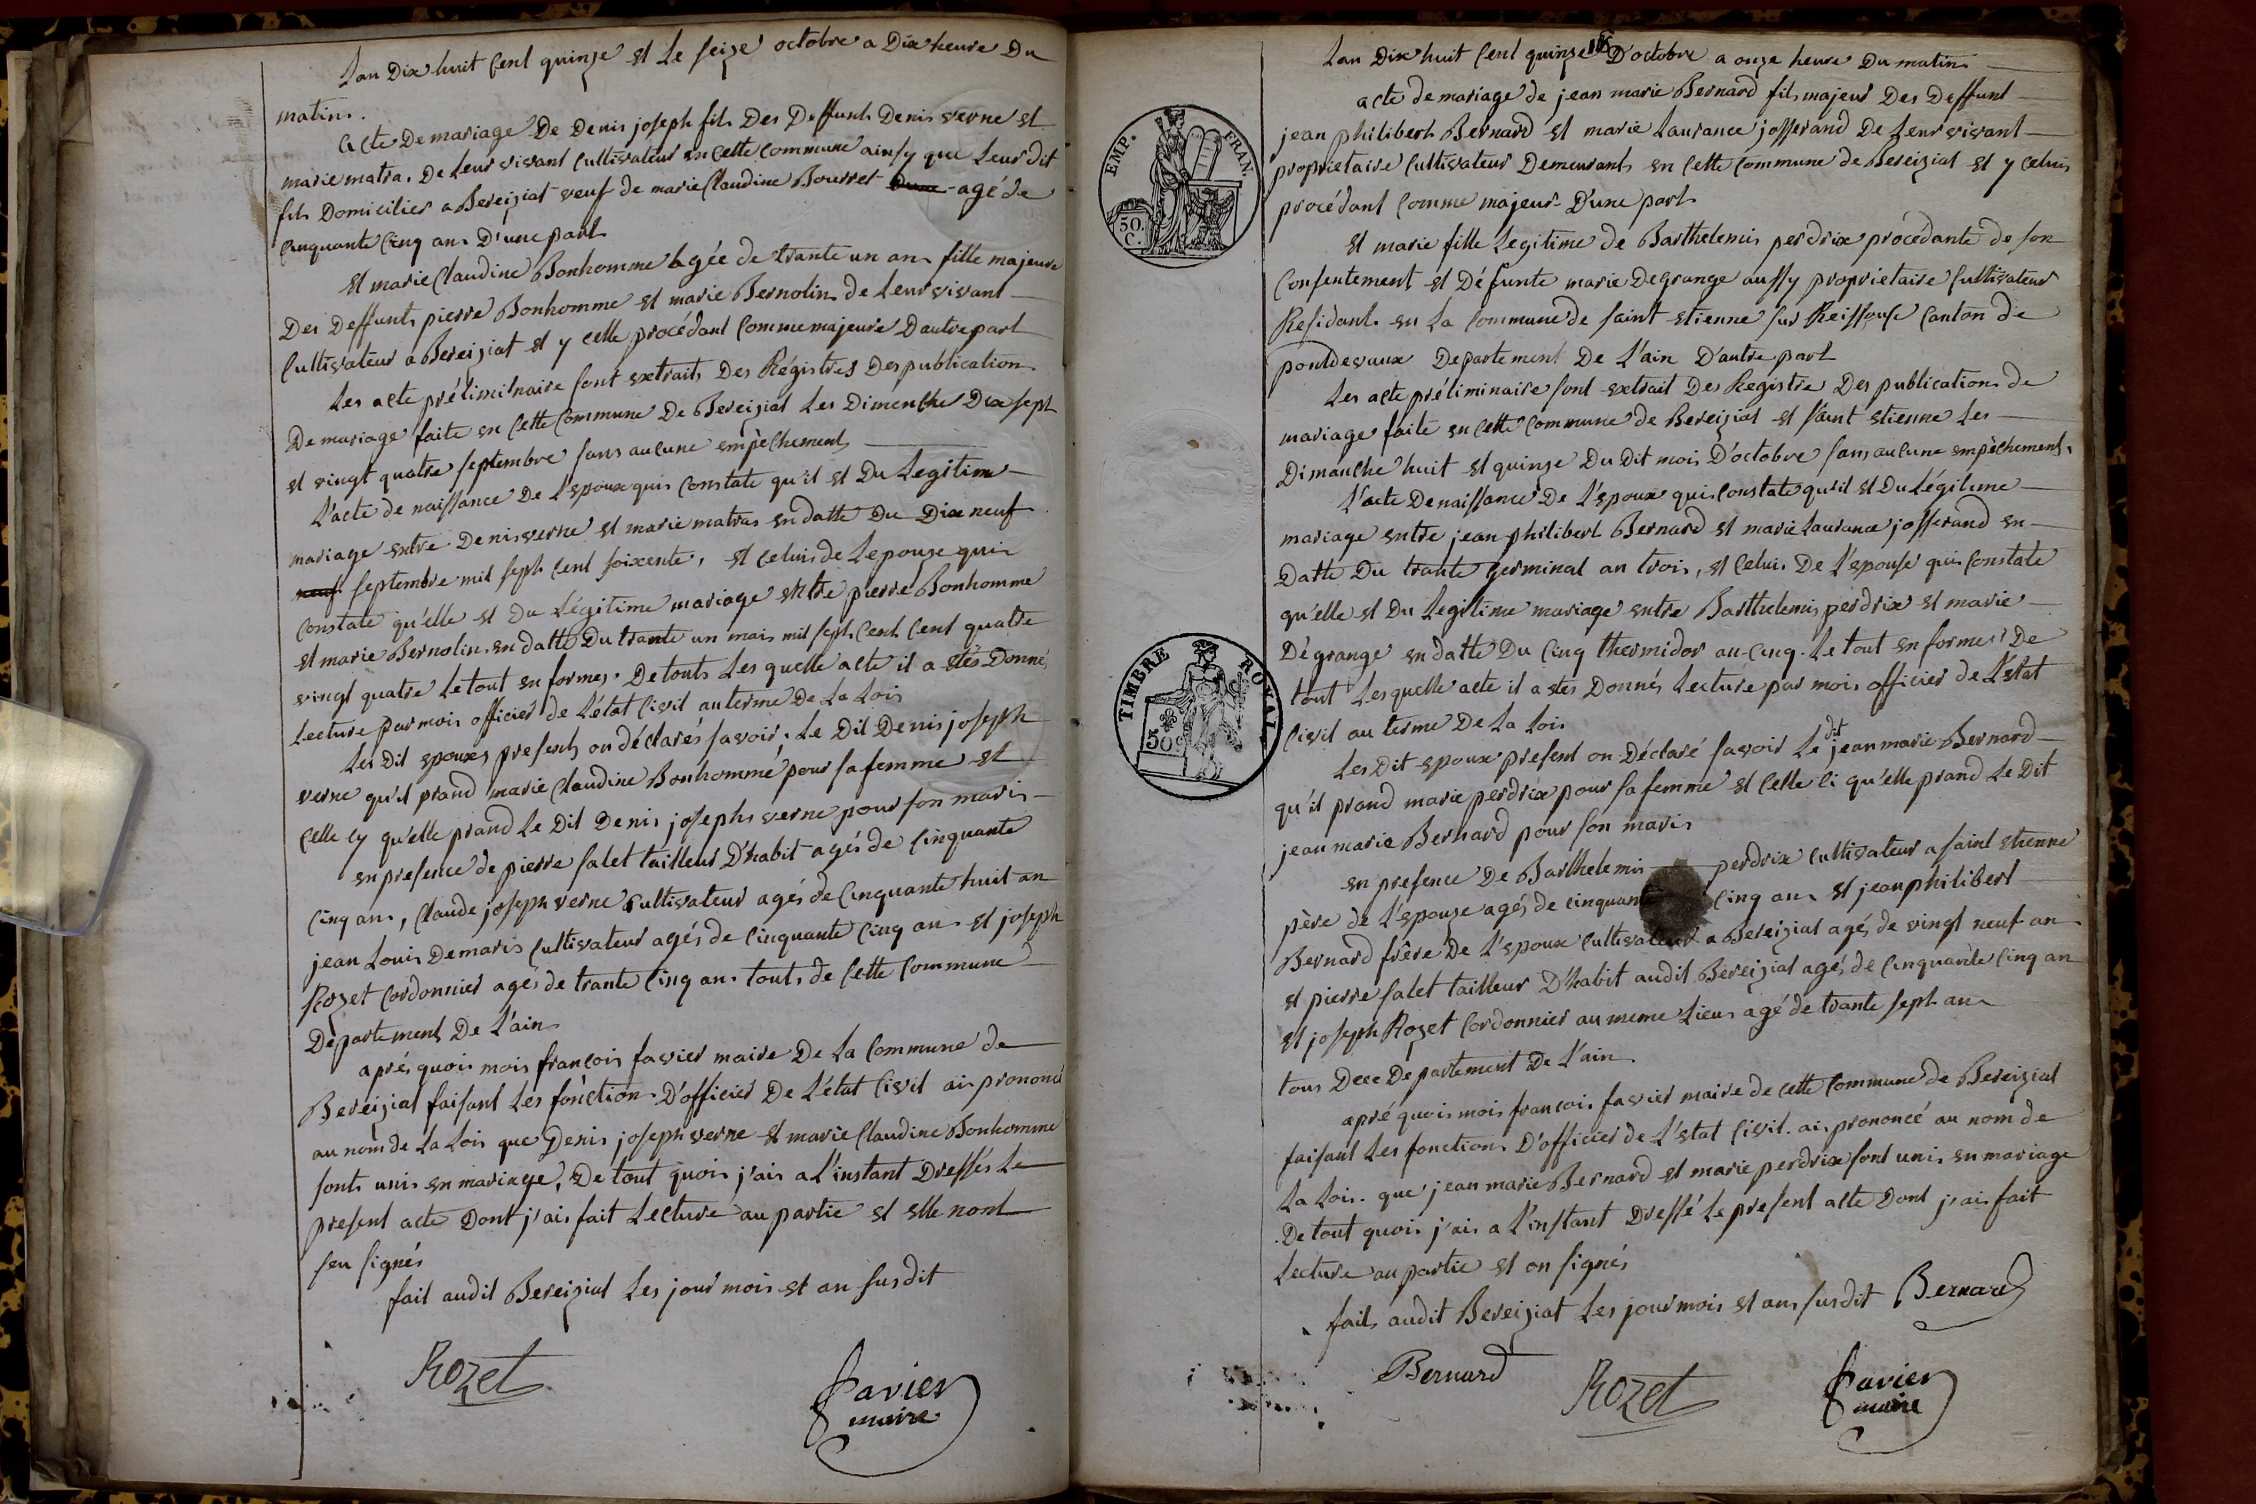 Lan Dix huit Cent quinze et Le seize octobre a Dix heure Du
matin.
acte De mariage De Denis joseph fils Des Deffunts Denis verne et
marie matra. De Leur vivant Cultivateur en Cette Commune ainsy que Leur dit
fils Domicilier a Bereiziat veuf de marie Claudine Bourret agé de
Cinquante Cinq ans D'une part
et marie Claudine Bonhomme agée de trante un ans fille majeure
Des Deffunts pierre Bonhomme et marie Bernolin de Leur vivant
Cultivateur a Bereiziat et y celle procédant Comme majeure D'autre part
Les acte prélimilnaire sont extraits Des Régistres Des publication
De mariage faite en Cette Commune De Bereiziat Les Dimenche Dix sept
et vingt quatre septembre sans aucune empêchements
L'acte de naissance De L'epoux qui Constate qu'il et Du Legitime
mariage entre Denis verne et marie matras en datte Du Dix neuf
neuf septembre mil sept Cent soixente, et Celui de Lepouze qui
Constate qu'elle et Du Légitime mariage entre pierre Bonhomme
et marie Bernolin en datte Du trante un mais mil sept Cent Cent quatre
vingt quatre Le tout en formes. De touts Les quelle acte il a etés Donné
Lecture par mois officier de L'état Civil au terme De La Lois
Les Dit epouxs presents on déclarés savoir, Le Dit Denis joseph
verne qu'il prand marie Claudine Bonhomme pour sa femme et
Celle Cy qu'elle prand Le Dit Denis joseph verne pour son maris
en presence de pierre falet tailleur D'habit agés de Cinquante
Cinq ans, Claude joseph verne Cultivateur agés de Cinquante huit an
jean Louis Demaris Cultivateur agés de Cinquante Cinq ans et joseph
Rozet Cordonnier agés de trante Cinq ans touts de Cette Commune
Departement De L'ain
aprés quois mois françois favier maire De La Commune de
Bereiziat faisant Les fonction D'officier De L'état Civil ais prononcé
au nom de La Lois que Denis joseph verne et marie Claudine Bonhomme
sonts unis en mariage, De tout quois j'ais a L'instant Dressés Le
present acte Dont j'ais fait Lecture au partie et elle nont
seu signés
fait audit Bereiziat Les jour mois et an susdit
Rozet
favier
maire
Lan Dix huit Cent quinze D'octobre a onze heure Du matin
acte de mariage de jean marie Bernard fils majeur Des Deffunt
jean philibert Bernard et marie Laurance josserand De Leur vivant
proprietaire Cultivateur Demeurants en Cette Commune de Bereiziat et y Celuis
procédant Comme majeur D'une part
et marie fille Legitime de Barthelemis perdrix procédante de son
Consentement et Défunte marie Degrange aussy propriétaire Cultivateur
Residant en La Commune de saint etienne sur Reissouse Canton de
pontdevaux Departement De L'ain D'autre part
Les acte préliminaire sont extrait Des Registre Des publication de
mariage faite en Cette Commune de Bereiziat et saint etienne Les
Dimanche huit et quinze Du Dit mois D'octobre sans aucune empêchements
L'acte De naissance De L'epoux qui Constate qu'il et Du Légitime
mariage entre jean philibert Bernard et marie Laurance josserand en
Datte Du trante Germinal an trois, et Celui De L'epouse qui Constate
qu'elle et Du Legitime mariage entre Barthelemis perdrix et marie
Dégrange en datte Du Cinq thermidor an Cinq. Le tout en forme De
tout Lesquelle acte il a etés Donnés Lecture par mois officier de L'état
Civil au terme De La Lois
Les Dit epoux present on Déclaré savoir Le dit jean marie Bernard
qu'il prand marie perdrix pour sa femme et Celle Ci qu'elle prand Le Dit
jean marie Bernard pour son maris
en presence De Barthelemis perdrix Cultivateur a saint etienne
père de L'epouze agés de Cinquante Cinq ans et jean philibert
Bernard frère De L'epoux Cultivateur a Bereiziat agés de vingt neuf an
et pierre falet tailleur D'habit audit Bereiziat agés de Cinquante Cinq an
et joseph Rozet Cordonnier au meme Lieu agé de trante sept an
tous Departement De L'ain
apré quois mois françois favier maire de cette Commune de Bereiziat
faisant Les fonction D'officier de L'etat Civil ais prononcé au nom de
La Lois que jean marie Bernard et marie perdrix sont unis en mariage
De tout quois j'ais a L'instant Dressé Le present acte Dont j'ais fait
Lecture au partie et on signés
fait audit Bereiziat Les jour mois et an susdit Bernard
Bernard
Rozet
favier
maire
EMP. FRAN.
50 C.
TIMBRE ROYAL
50 c